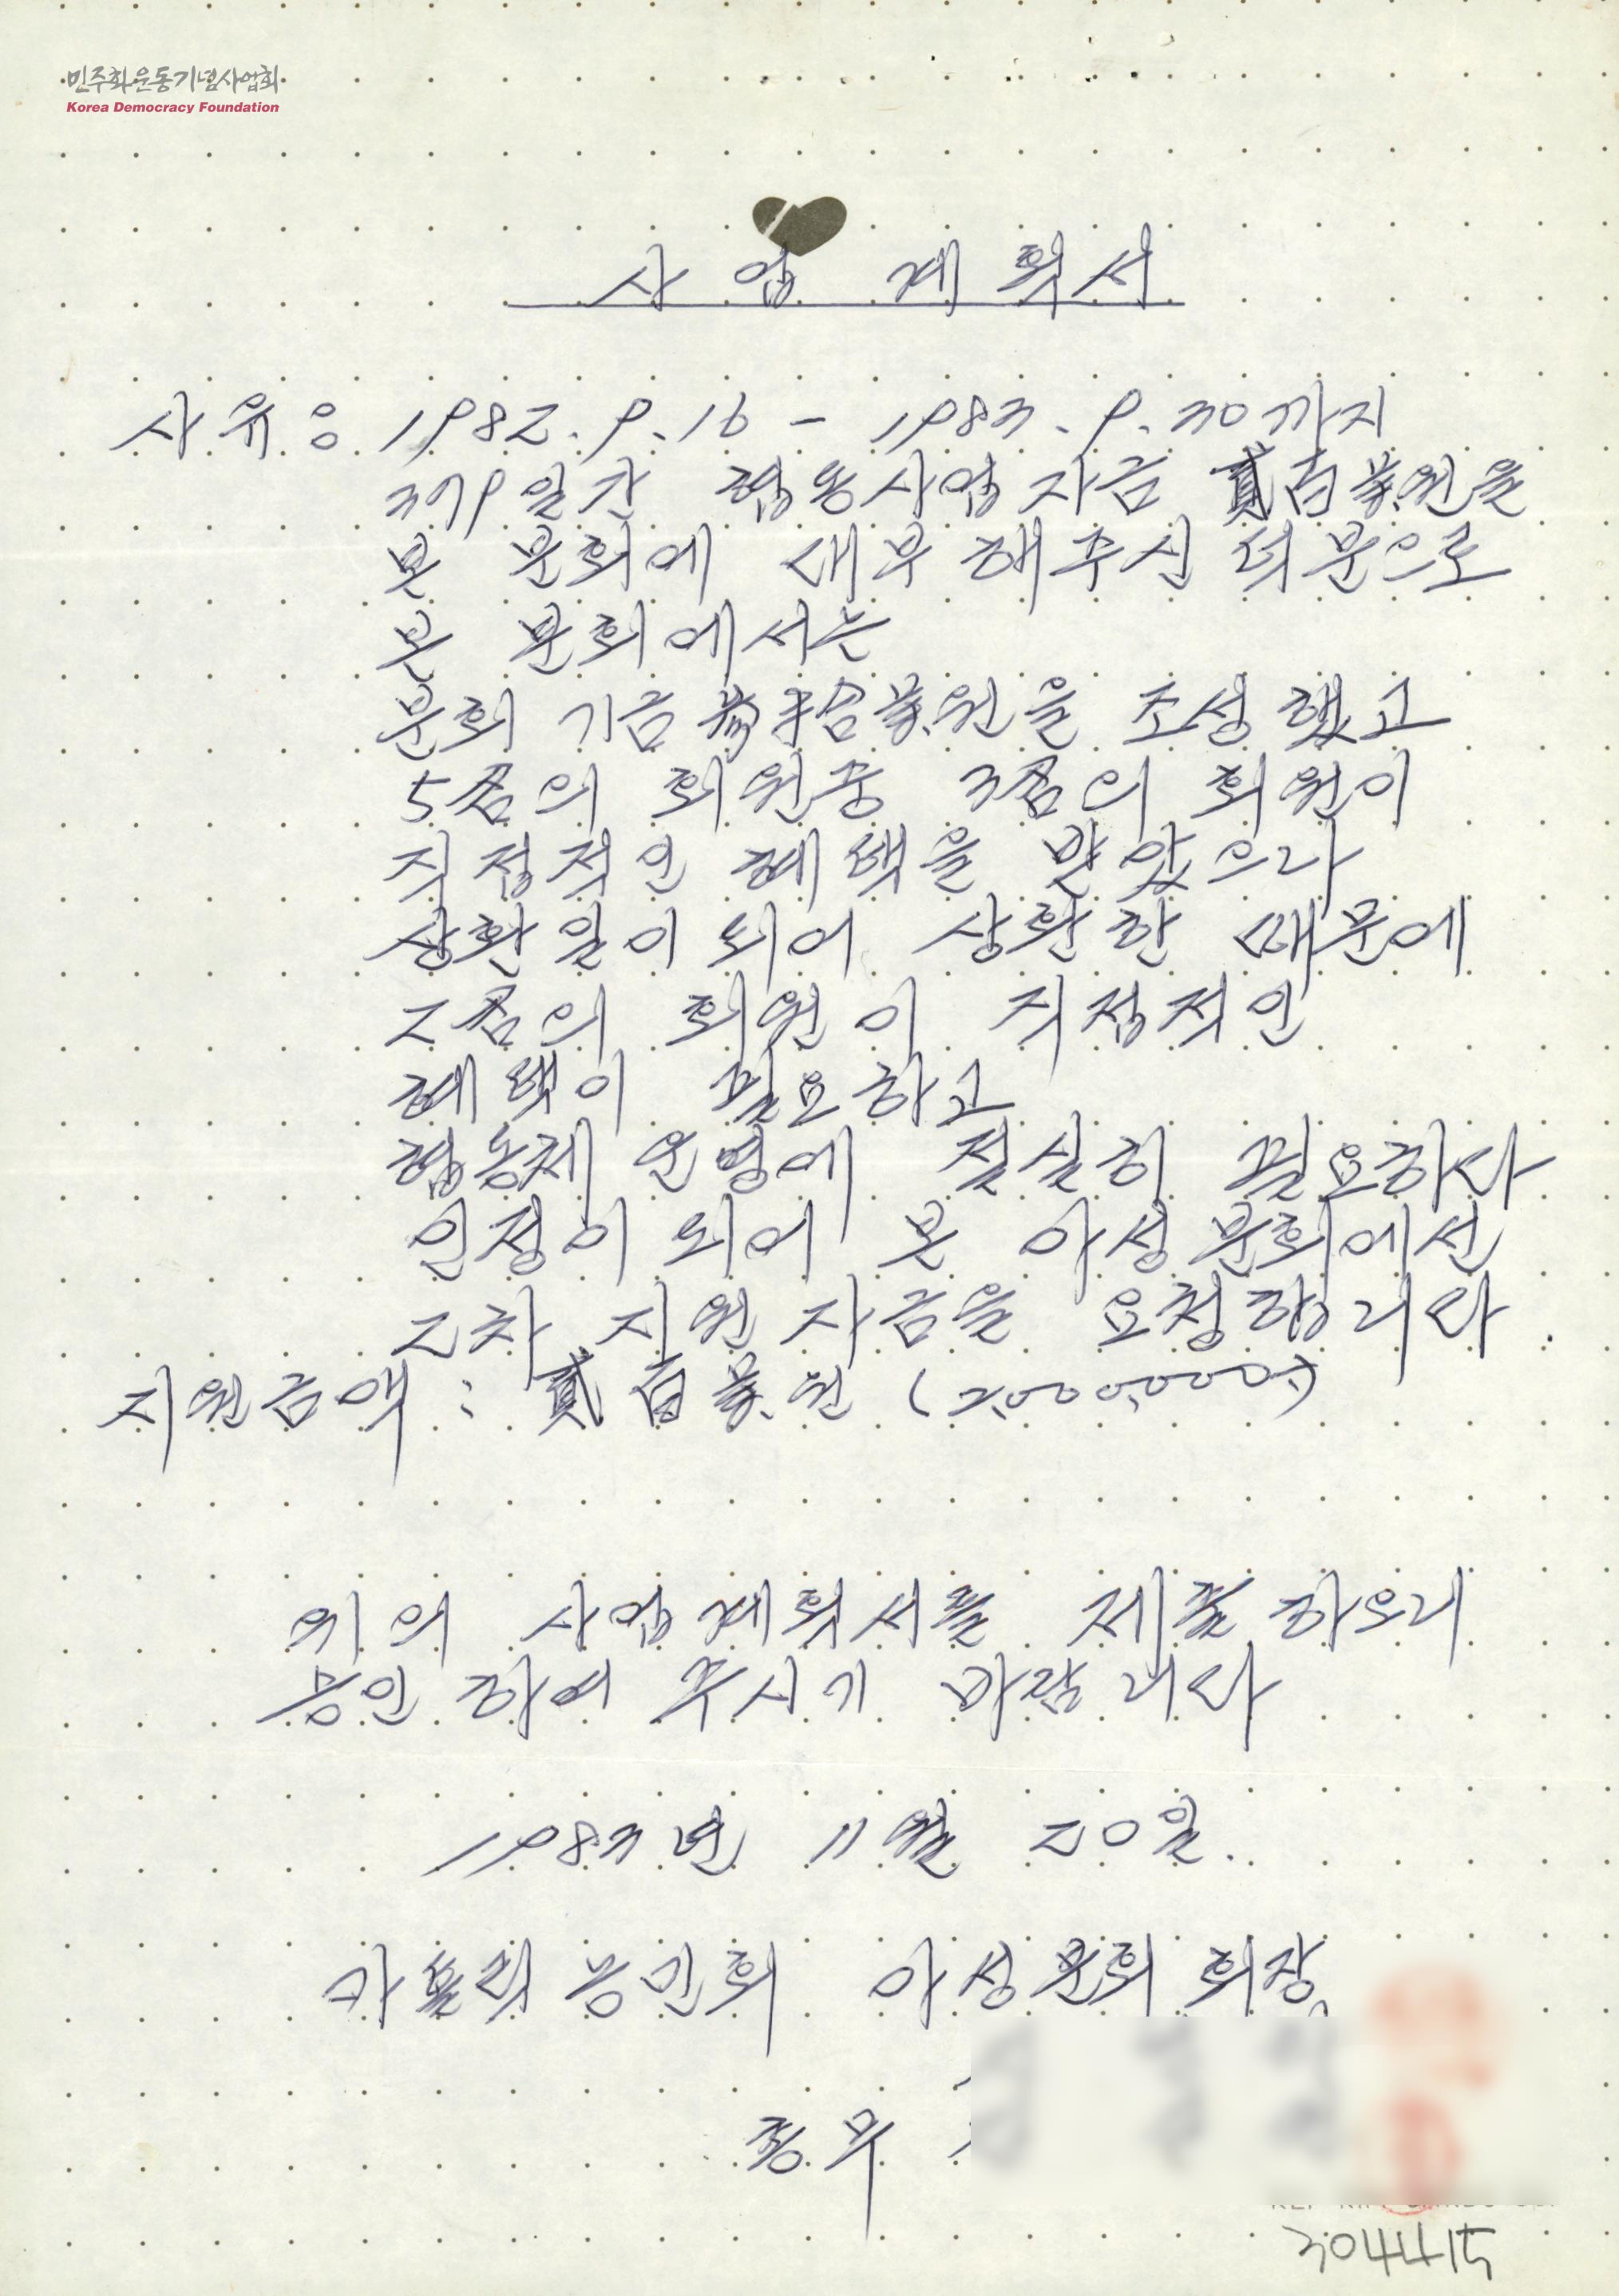 민주화운동기념사업회
Korea Democracy Foundation
사 업 계획서
사유 : 1982. 9. 16 - 1983. 9. 30까지
379일간 협동사업자금 貳百萬원을
본 분회에 대부해주신 덕분으로
본 분회에서는
분회 기금 拾萬원을 조성했고
5명의 회원중 3명의 회원이
직접적인 혜택을 받았으나
상환일이 되어 상환한 때문에
2명의 회원이 직접적인
혜택이 필요하고
협동체 운영에 절실히 필요하다
인정이 되어 본 아성분회에선
2차 지원자금을 요청합니다.
지원금액 : 貳百萬원 (2,000,000)
위의 사업계획서를 제출하오니
승인하여 주시기 바랍니다
1983년 11월 20일.
가톨릭농민회 아성분회 회장
총무
3044415